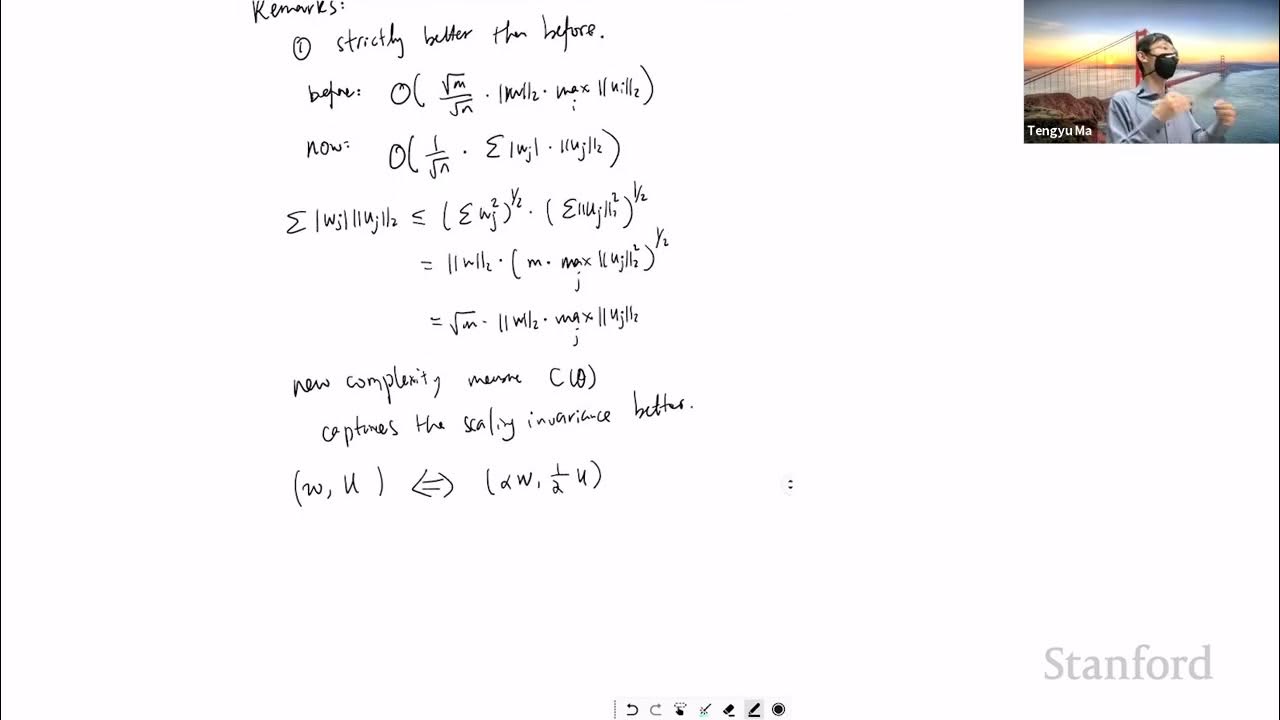 Remarks:
① strictly better than before.
before: O( √m/√n · ||w||₂ · max_i ||u_i||₂ )
now: O( 1/√n · Σ |w_j| · ||u_j||₂ )
Σ |w_j| ||u_j||₂ ≤ ( Σ w_j² )^1/2 · ( Σ ||u_j||₂² )^1/2
= ||w||₂ · ( m · max_j ||u_j||₂² )^1/2
= √m · ||w||₂ · max_j ||u_j||₂
new complexity measure C(θ)
captures the scaling invariance better.
(w, U) ⇔ (αw, 1/α U)
Tengyu Ma
Stanford